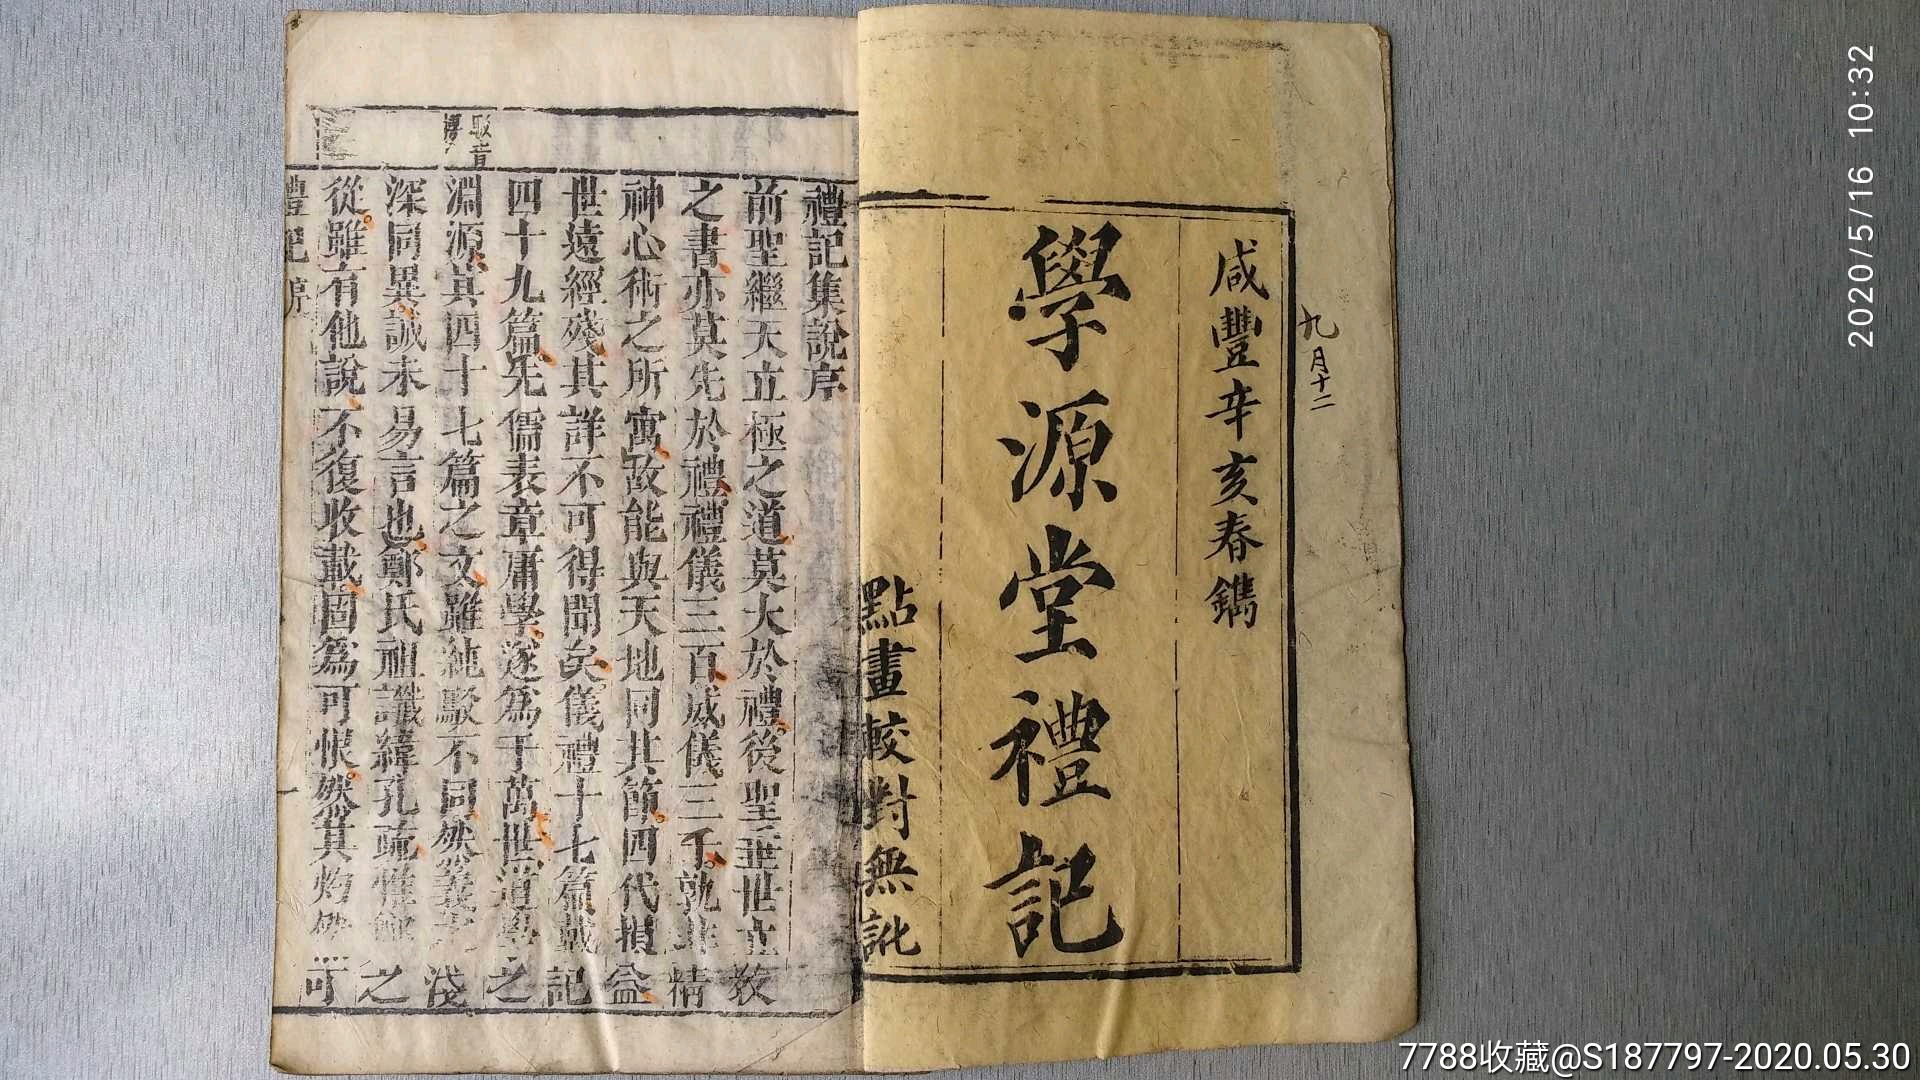 九月十二
咸豐辛亥春鐫
學源堂禮記
點畫較對無訛
禮記集說序
前聖繼天立極之道莫大於禮後聖垂世立教
之書亦莫先於禮禮儀三百威儀三千孰非精
神心術之所寓故能與天地同其節四代損益
世遠經殘其詳不可得聞矣儀禮十七篇戴記
四十九篇先儒表章庸學遂為千萬世道學之
淵源其四十七篇之文雖純駁不同然義之淺
深同異誠未易言也鄭氏祖讖緯孔疏惟鄭之
從雖有他說不復收載固為可恨然其灼然可
駁音
禮記序
一
2020/5/16 10:32
7788收藏@S187797-2020.05.30